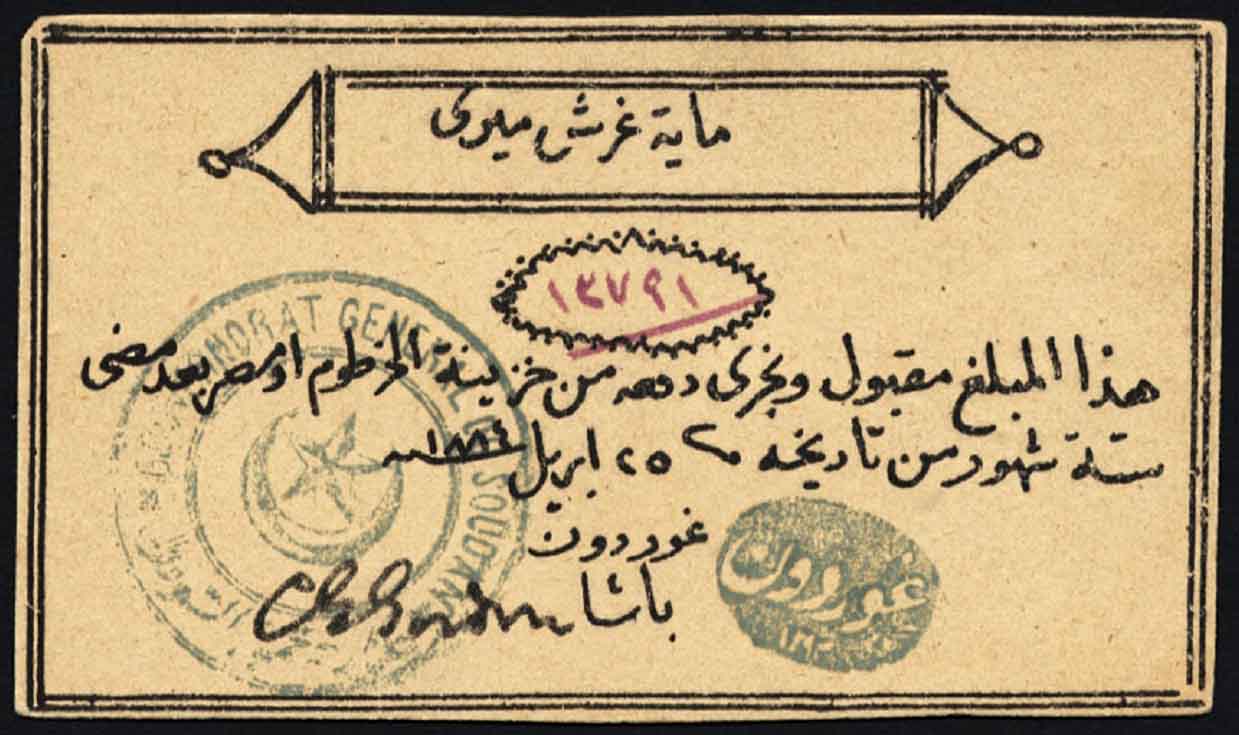 ماية غرش ميرى
١٣٧٩١
هذا المبلغ مقبول ويجرى دفعه من خزينة الخرطوم او مصر بعد مضى
ستة شهور من تاريخه ٢٥ ابريل ١٨٨٤
غوردون
باشا
C G Gordon
GOUVERNORAT GENERAL DU SOUDAN
غوردون